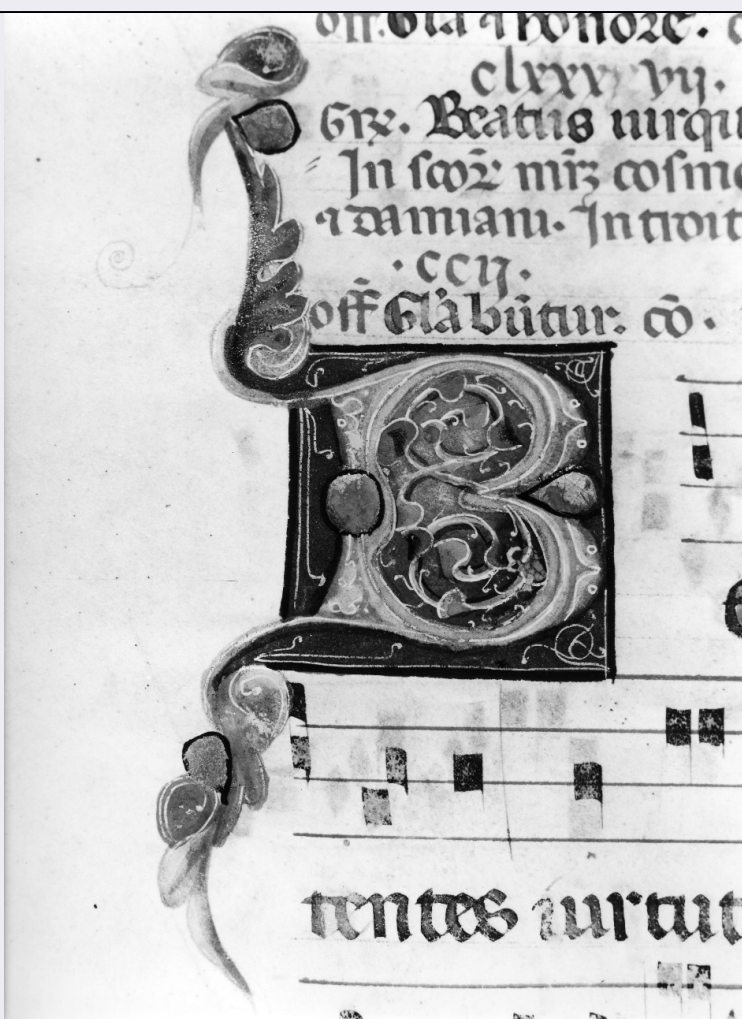 off. Gl̃a ⁊ honore.
clxxxvij.
Grẽ. Beatus uir qui
In sc̃oꝝ mr̃ꝝ cosme
⁊ damiani. Introit
.ccij.
off̃ Gl̃abũtur. cõ.
B
tentes uirtut